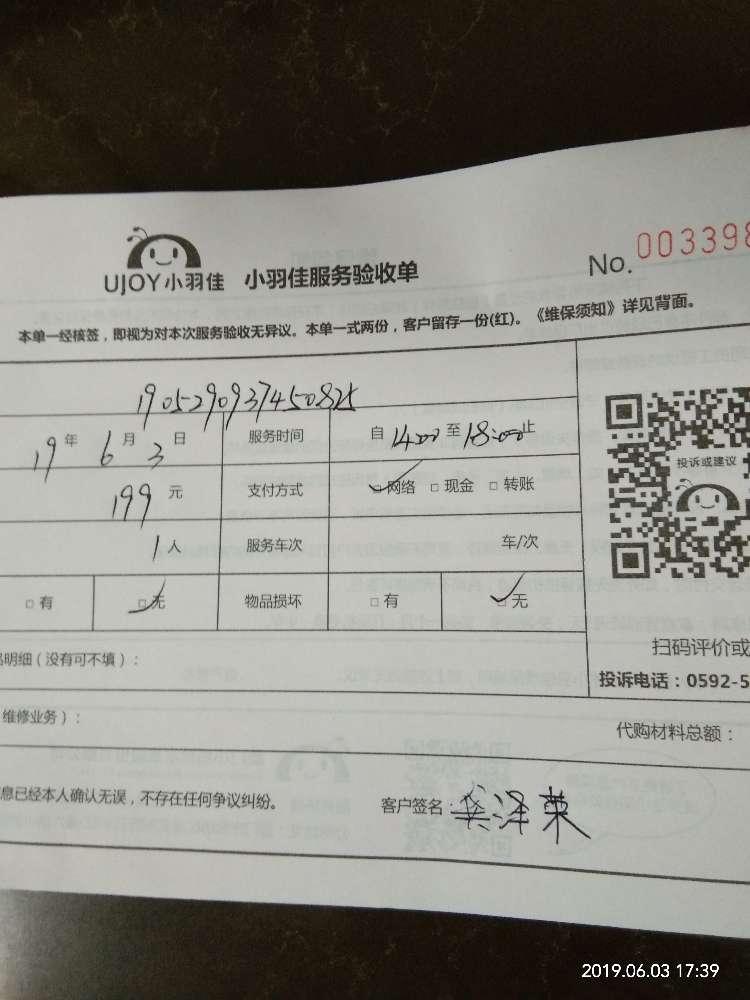 UJOY小羽佳 小羽佳服务验收单 No. 003398
本单一经核签，即视为对本次服务验收无异议。本单一式两份，客户留存一份(红)。《维保须知》详见背面。
190529093745082
19年6月3日 服务时间 自14:00至18:00止
199元 支付方式 网络 现金 转账
投诉或建议
1人 服务车次 车/次
有 无 物品损坏 有 无
明细（没有可不填）：
扫码评价或
投诉电话：0592-5
维修业务）：
代购材料总额：
息已经本人确认无误，不存在任何争议纠纷。 客户签名：龚泽荣
2019.06.03 17:39